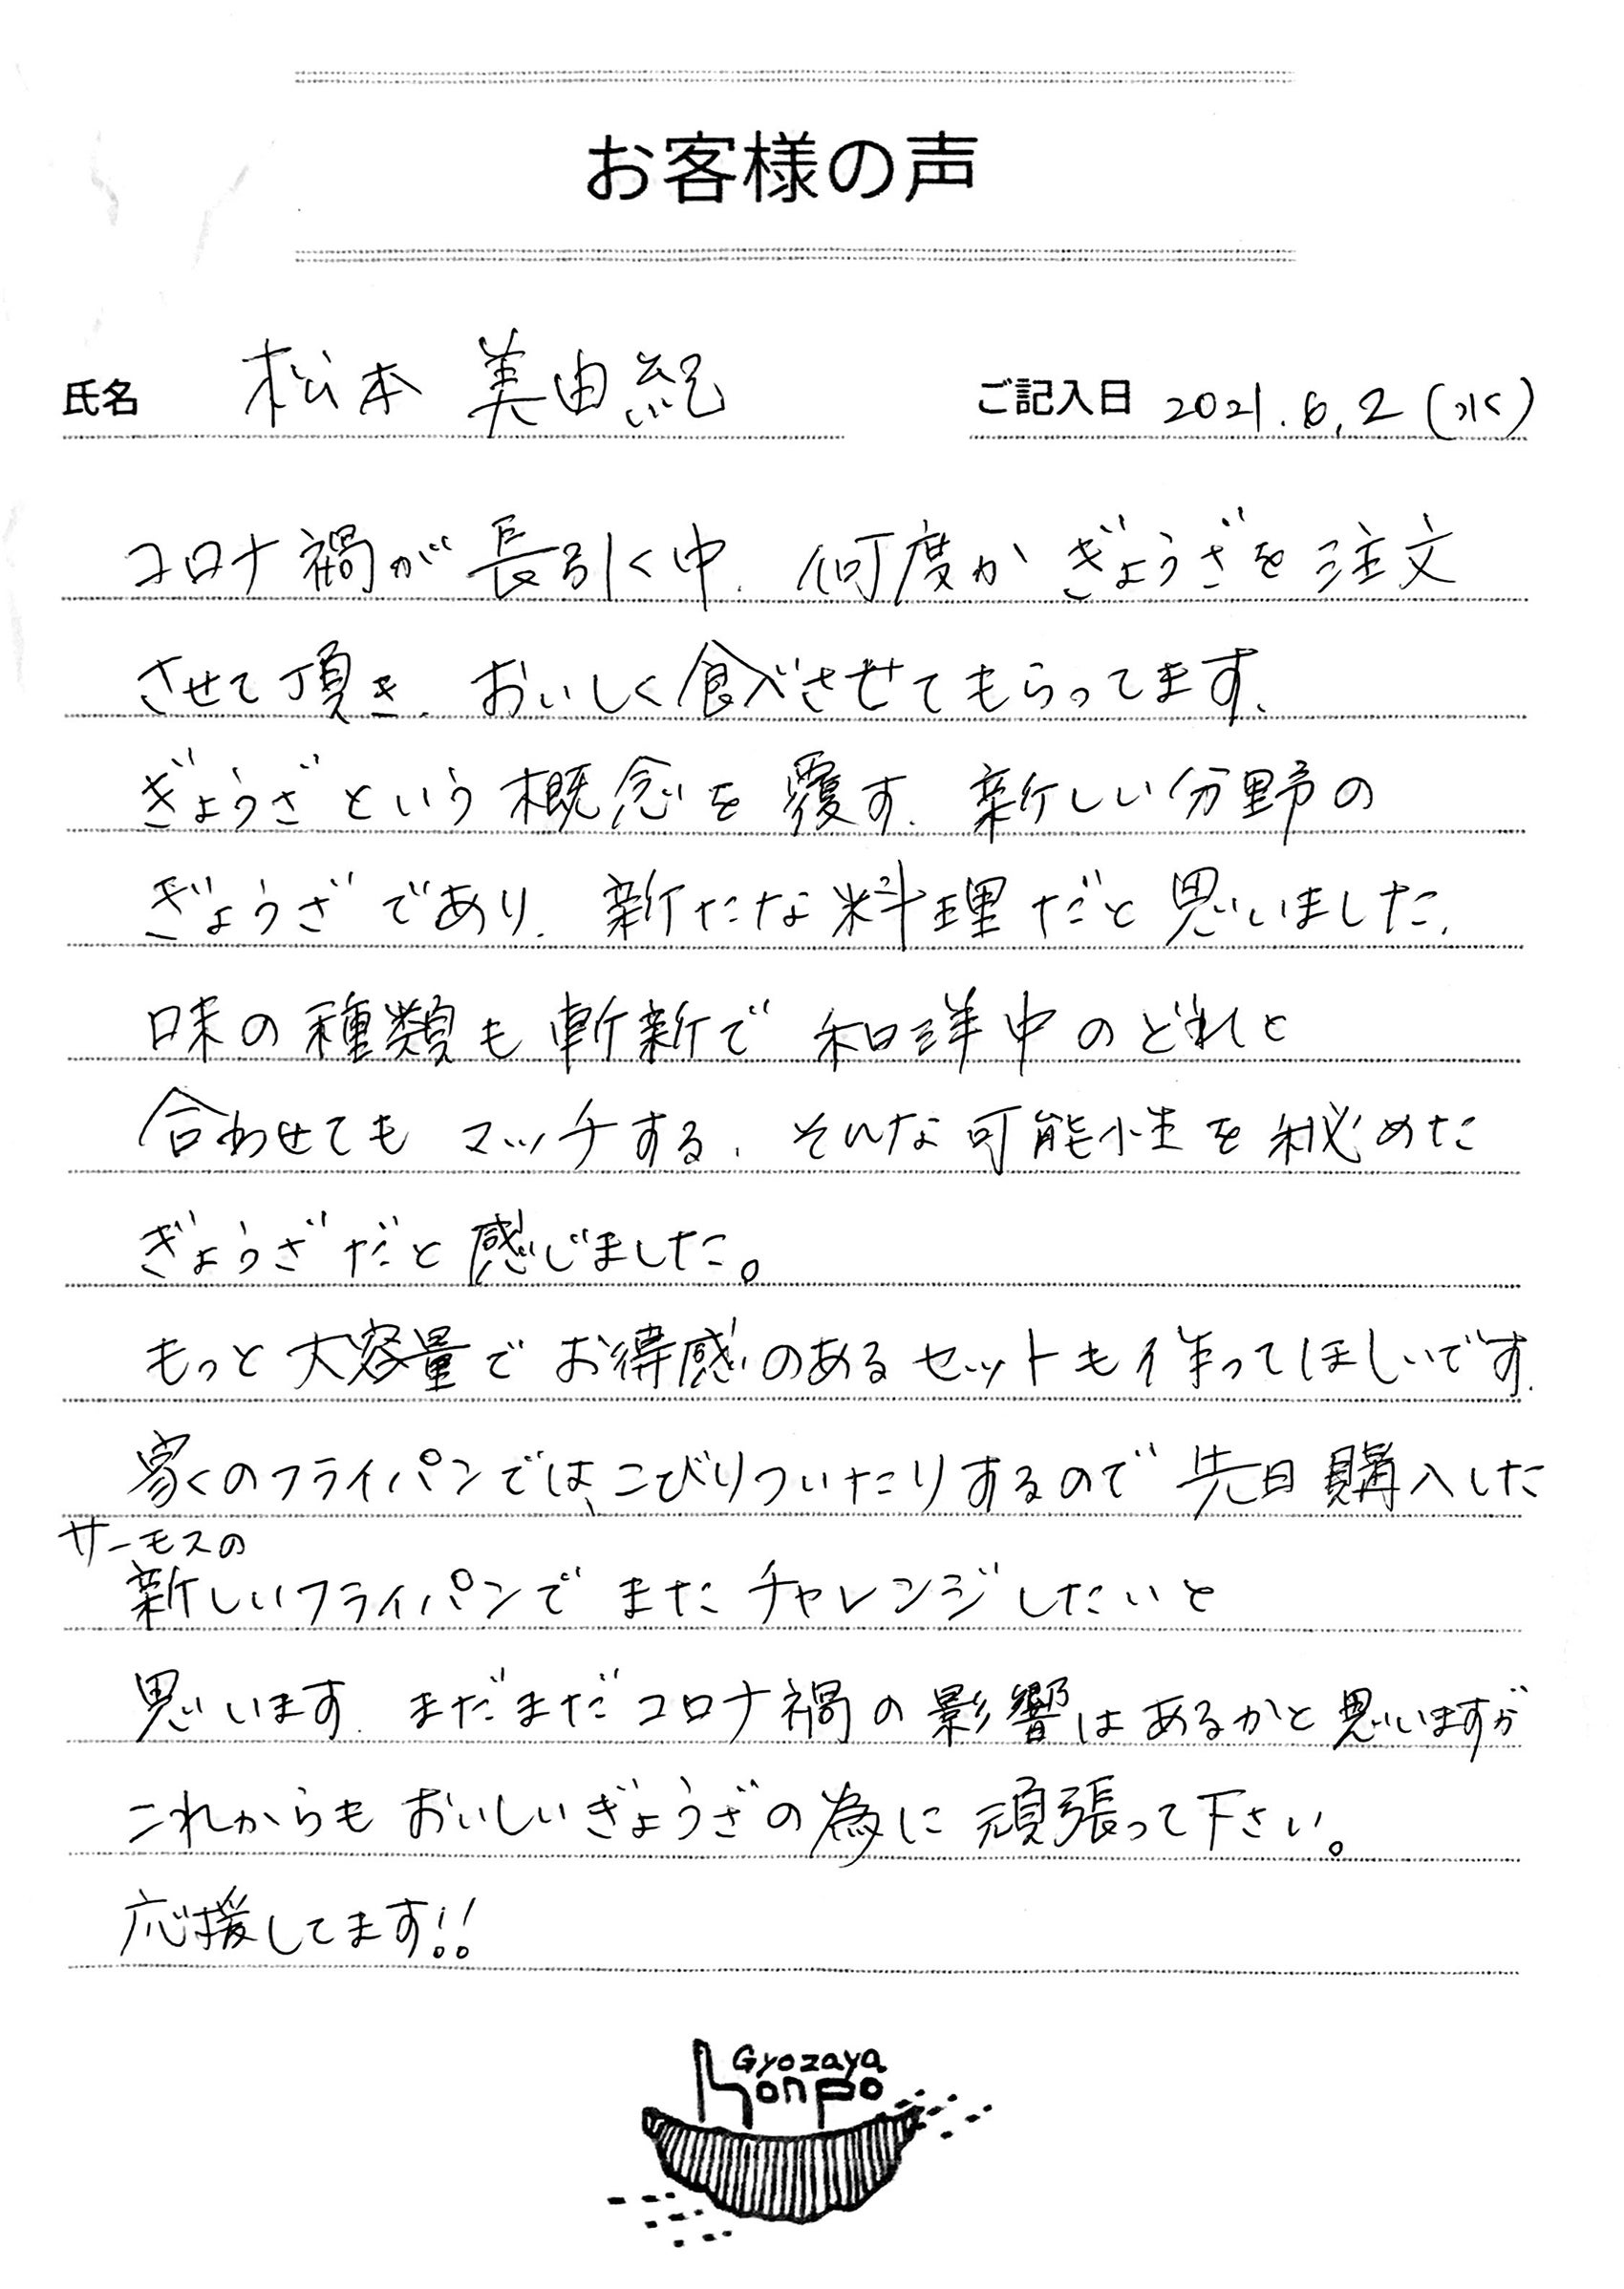 お客様の声
氏名 松本 美由紀 ご記入日 2021.6.2(水)
コロナ禍が長引く中、何度かぎょうざを注文
させて頂き、おいしく食べさせてもらってます。
ぎょうざという概念を覆す、新しい分野の
ぎょうざであり、新たな料理だと思いました。
味の種類も斬新で 和洋中のどれと
合わせても マッチする、そんな可能性を秘めた
ぎょうざだと感じました。
もっと大容量でお得感のあるセットも作ってほしいです。
家のフライパンでは、こびりついたりするので 先日購入した
サーモスの
新しいフライパンで またチャレンジしたいと
思います。まだまだコロナ禍の影響はあるかと思いますが
これからも おいしいぎょうざの為に 頑張って下さい。
応援してます!!
Gyozaya
honpo